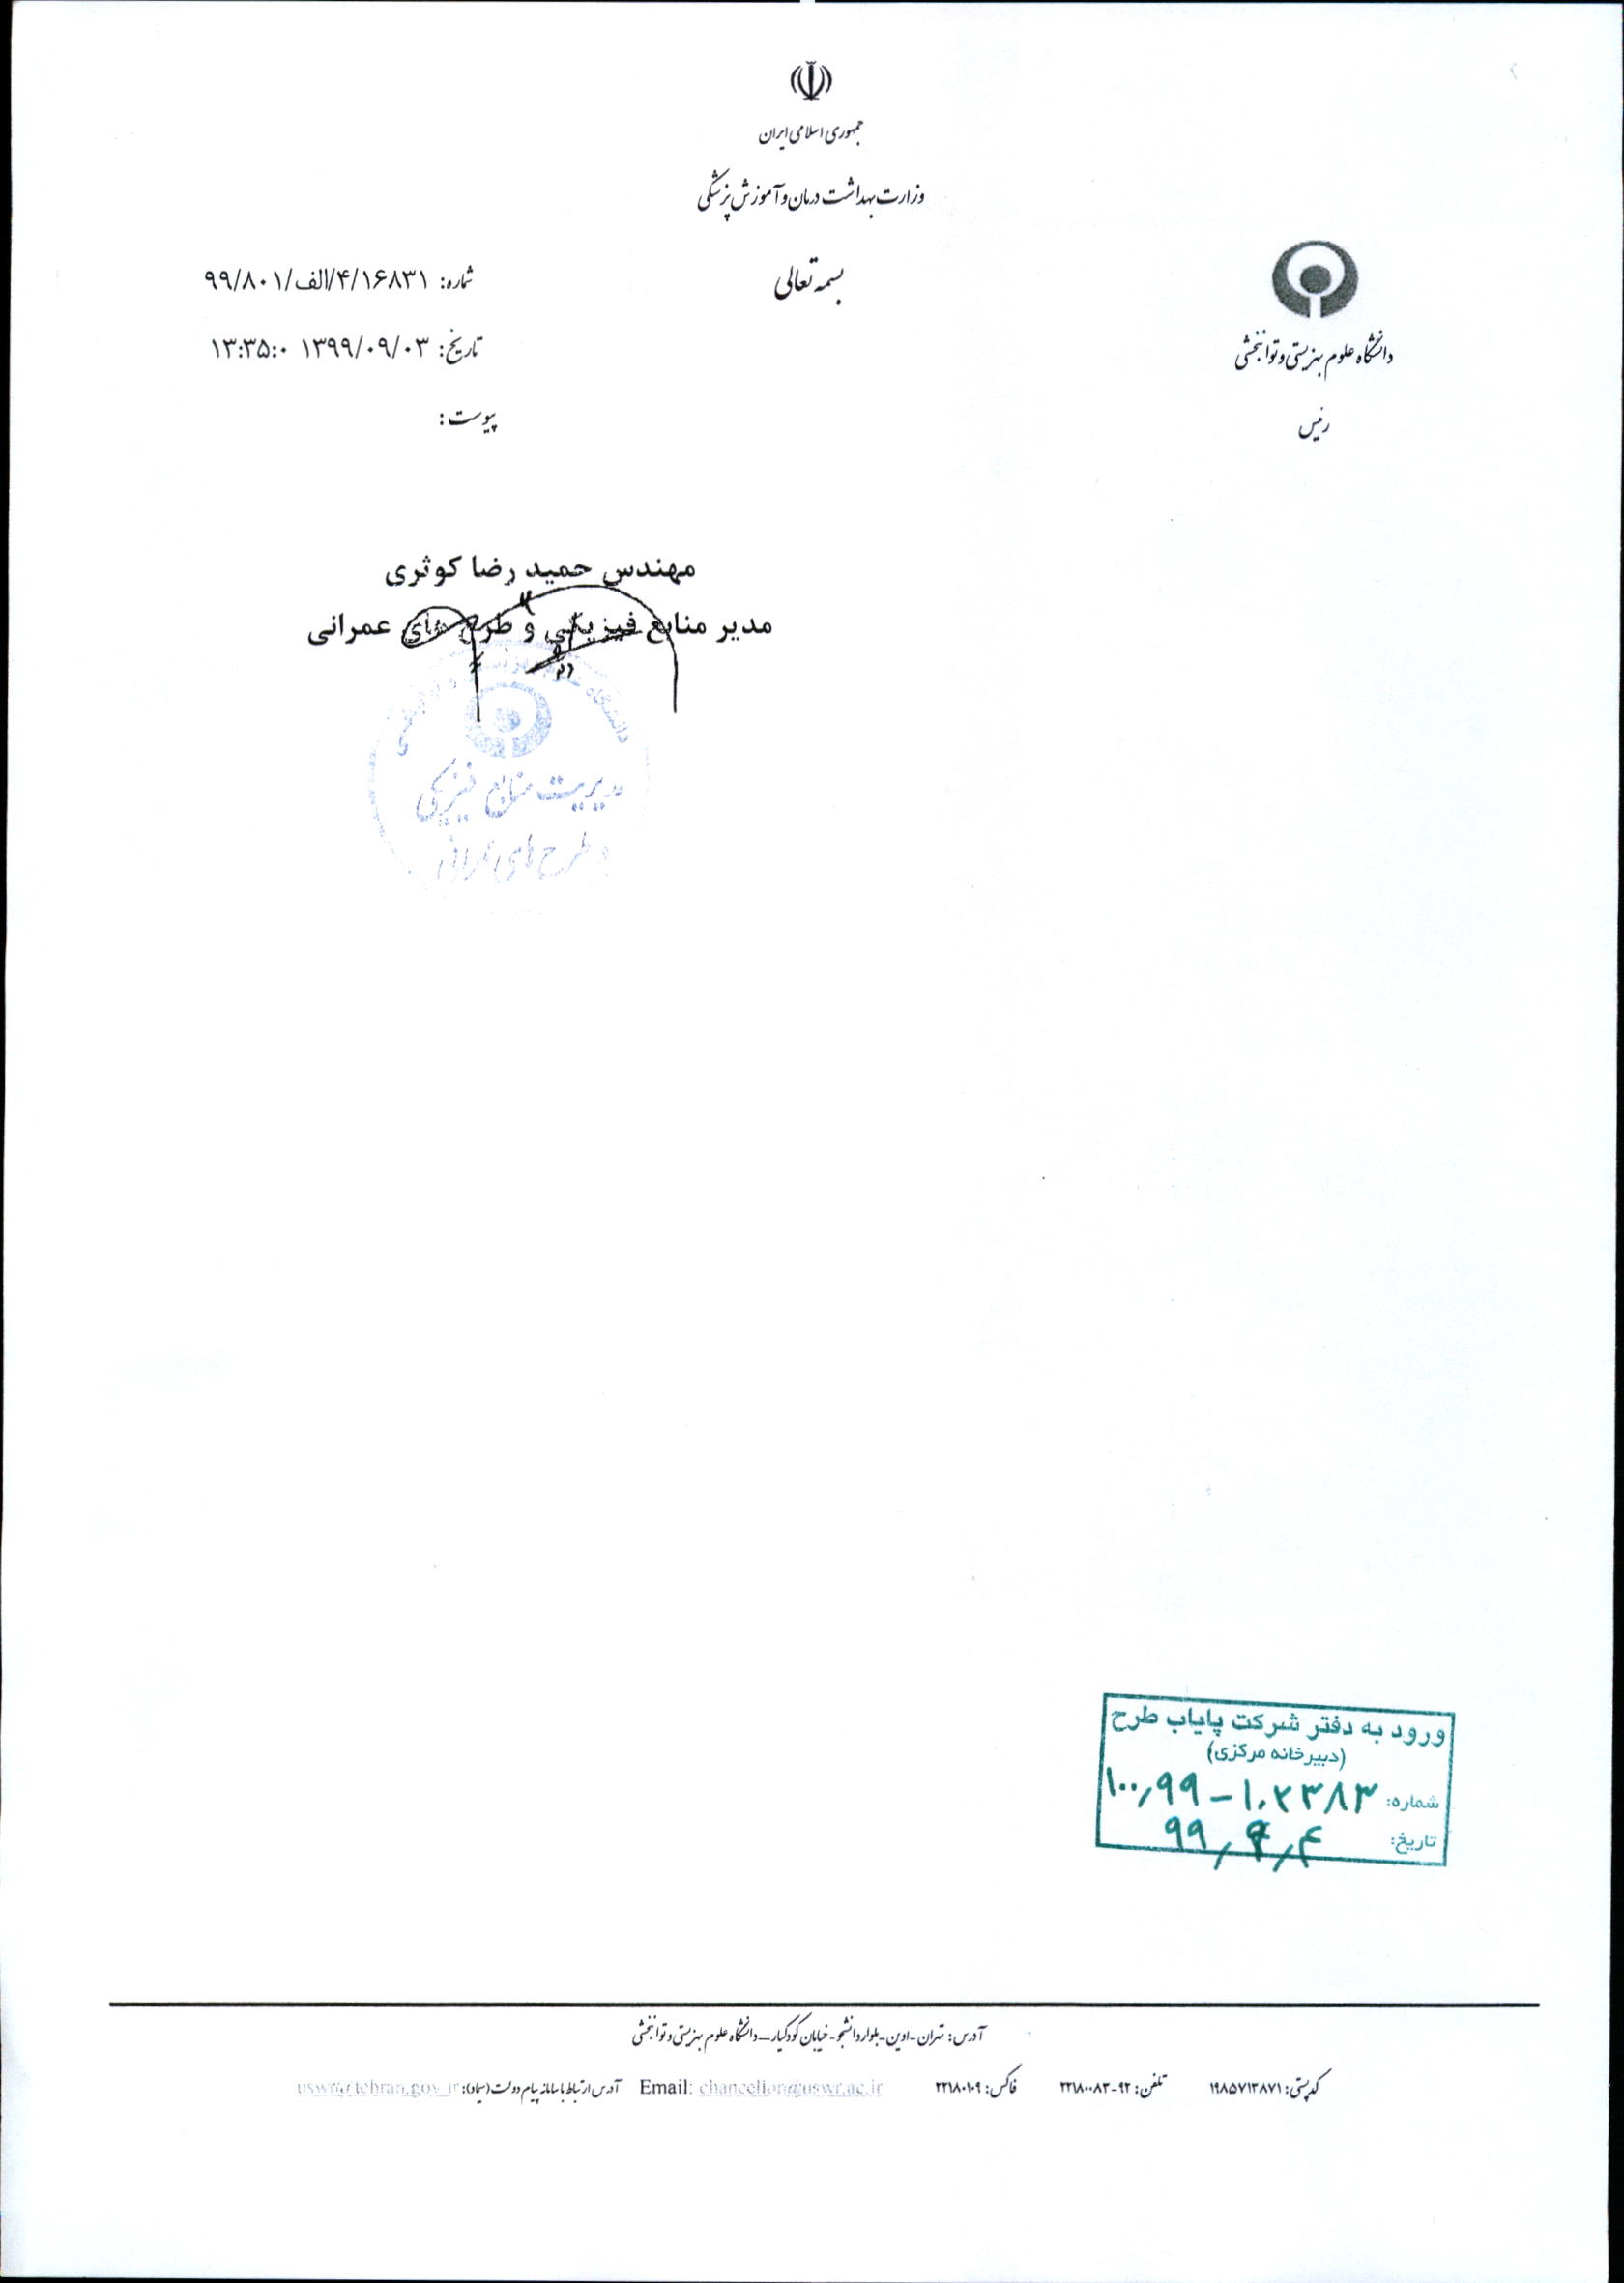 جمهوری اسلامی ایران
وزارت بهداشت درمان و آموزش پزشکی
بسمه تعالی
دانشگاه علوم بهزیستی و توانبخشی
رئیس
شماره: ۹۹/۸۰۱/الف/۴/۱۶۸۳۱
تاریخ: ۱۳۹۹/۰۹/۰۳ ۱۳:۳۵:۰
پیوست:
مهندس حمید رضا کوثری
مدیر منابع فیزیکی و طرح های عمرانی
دانشگاه علوم بهزیستی و توانبخشی
مدیریت منابع فیزیکی
و طرح های عمرانی
ورود به دفتر شرکت پایاب طرح
(دبیرخانه مرکزی)
شماره: ۱۰۰٫۹۹ - ۱۰۲۳۸۳
تاریخ: ۹۹٫۹٫۴
آدرس: تهران-اوین-بلوار دانشجو-خیابان کودکیار_دانشگاه علوم بهزیستی و توانبخشی
کدپستی: ۱۹۸۵۷۱۳۸۷۱ تلفن: ۹۲-۲۲۱۸۰۰۸۳ فاکس: ۲۲۱۸۰۱۰۹ Email: chancellor@uswr.ac.ir آدرس ارتباط با سامانه پیام دولت (سپاد): uswr@tehran.gov.ir